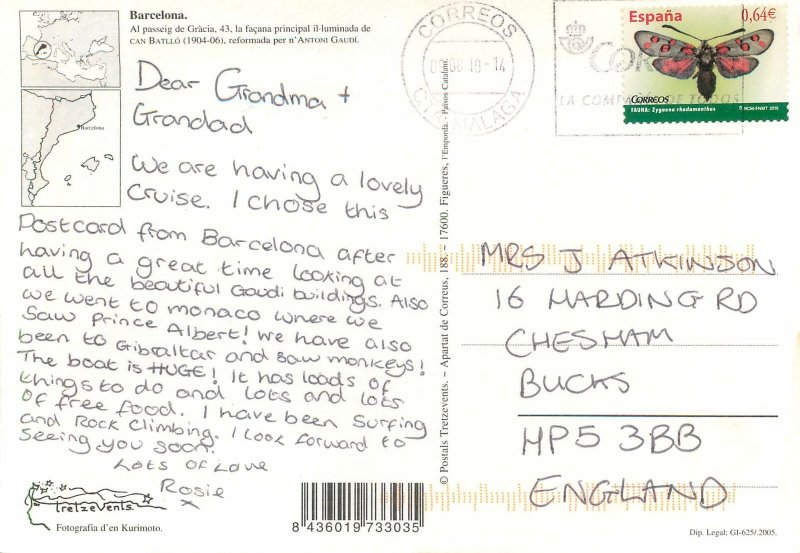 Barcelona.
Al passeig de Gràcia, 43, la façana principal il·luminada de
CAN BATLLÓ (1904-06), reformada per n'ANTONI GAUDÍ.
Barcelona
Dear Grandma +
Grandad
We are having a lovely
Cruise. I chose this
Postcard from Barcelona after
having a great time looking at
all the beautiful Gaudi buildings. Also
we went to monaco where we
saw Prince Albert! We have also
been to Gibraltar and saw monkeys!
The boat is HUGE! It has loads of
things to do and lots and lots
of free food. I have been Surfing
and Rock Climbing. I look forward to
seeing you soon.
Lots of Love
Rosie
x
TretzeVents.
Fotografia d'en Kurimoto.
8 436019 733035
© Postals Tretzevents. ~ Apartat de Correus, 188. ~ 17600. Figueres, l'Empordà. Països Catalans.
CORREOS
MALAGA
LA COMPAÑIA DE TODOS
España 0,64€
CORREOS
RCM-FNMT 2010
FAUNA: Zygaena rhadamanthus
MRS J ATKINSON
16 HARDING RD
CHESHAM
BUCKS
HP5 3BB
ENGLAND
Dip. Legal: GI-625/.2005.